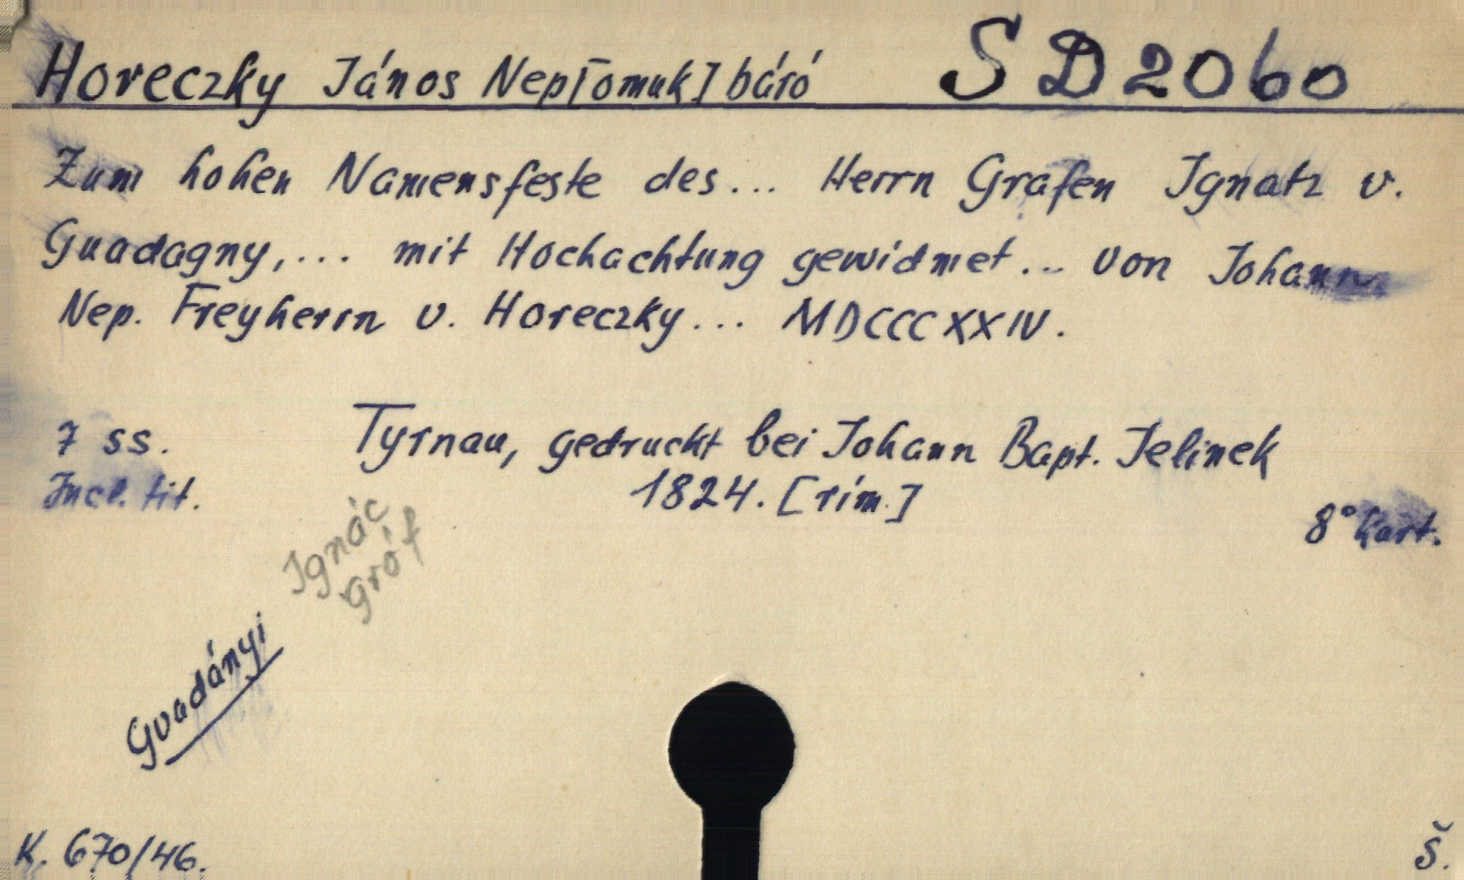 Horeczky János Nep[omuk] báró SD2060
Zum hohen Namensfeste des... Herrn Grafen Ignatz v.
Guadagny,... mit Hochachtung gewidmet... von Johann
Nep. Freyherrn v. Horeczky... MDCCCXXIV.
7 ss. Tyrnau, gedruckt bei Johann Bapt. Jelinek
Incl. tit. 1824. [rím.]
8° kart.
Ignác
gróf
Gvadányi
K. 670/46. Š.